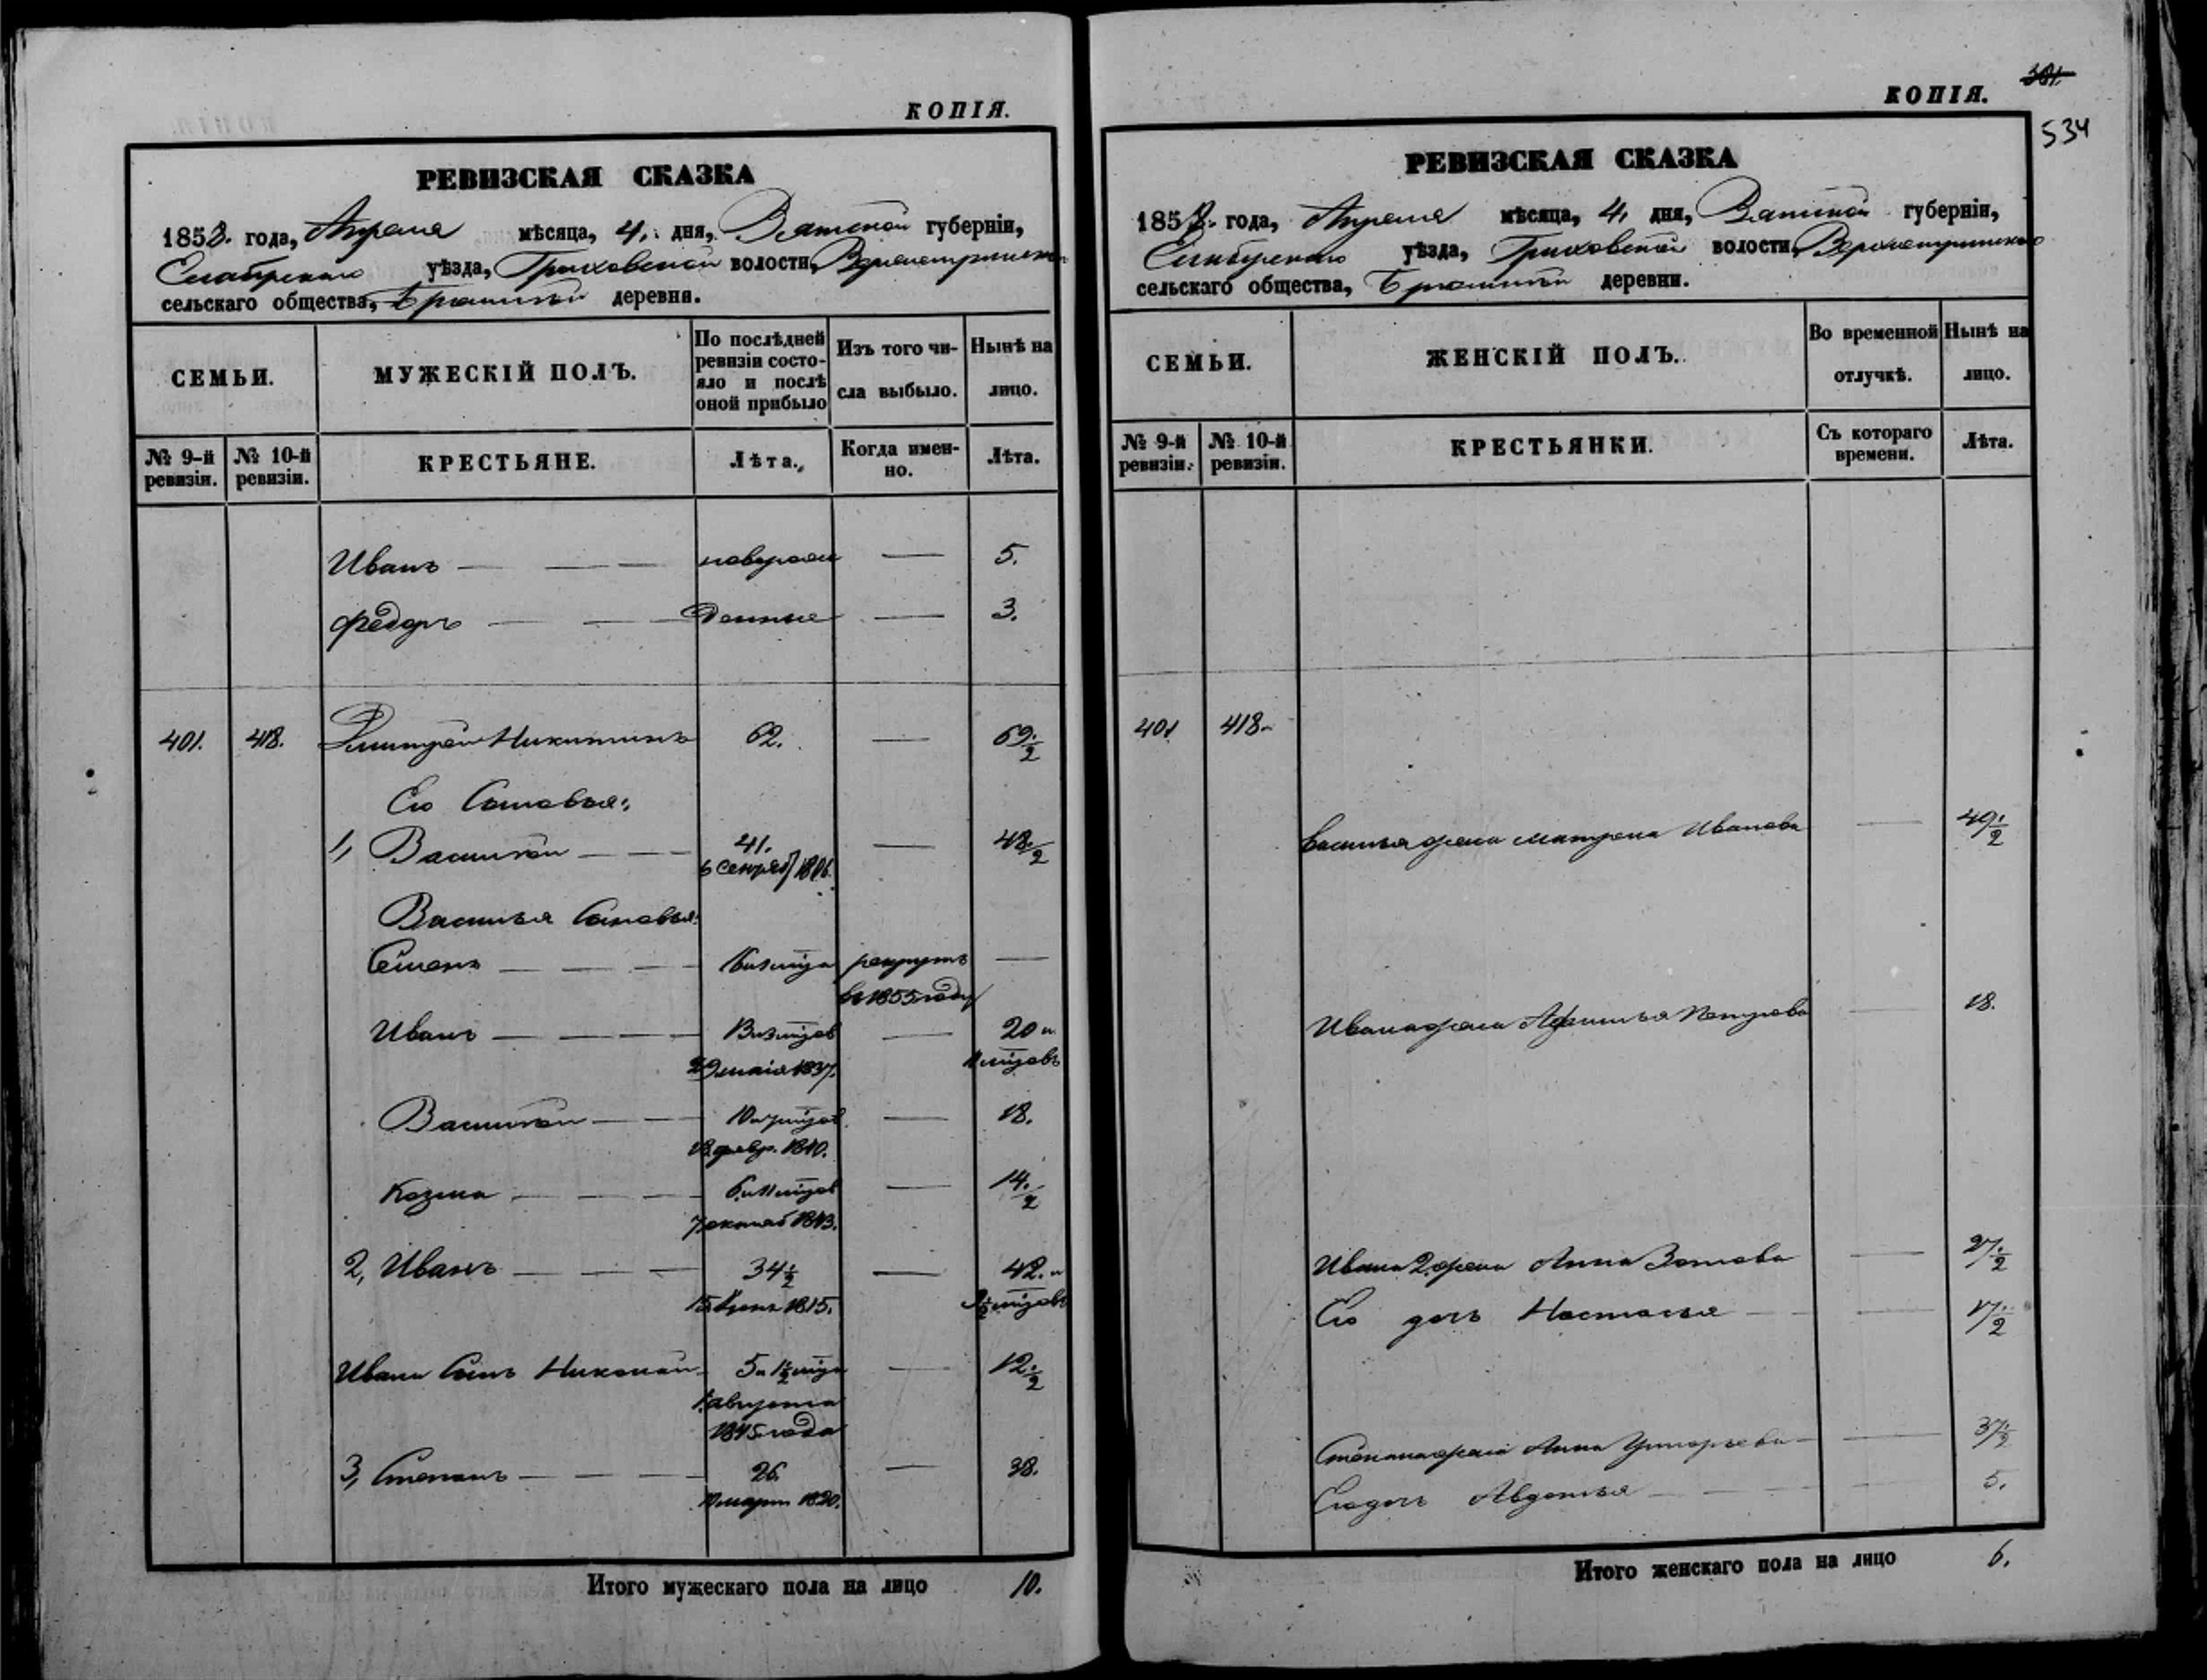 КОПІЯ.
РЕВИЗСКАЯ СКАЗКА
1858. года, Апреля мѣсяца, 4. дня, Вятской губерніи,
Елабужскаго уѣзда, волости,
сельскаго общества, деревня.
СЕМЬИ.
МУЖЕСКІЙ ПОЛЪ.
По послѣдней ревизіи состояло и послѣ оной прибыло
Изъ того числа выбыло.
Нынѣ на лицо.
№ 9-й ревизіи.
№ 10-й ревизіи.
КРЕСТЬЯНЕ.
Лѣта.
Когда именно.
Лѣта.
Иванъ — — — новорож — 5.
Федоръ — — — денные — 3.
401. 418. Дмитрей Никитинъ 62. — 69 1/2
Его Сыновья:
1, Василей — — 41. — 48 1/2
6 Сентяб 1806.
Василья Сыновья:
Семенъ — — — рекрутъ —
въ 1855 году
Иванъ — — — — 20 и
29 маія 1837. мцовъ
Василей — — — 18.
18 февр. 1840.
Козма — — — — 14 1/2
7 октяб 1843.
2, Иванъ — — — 34 1/2 — 42. и
1815. мцовъ
Ивана Сынъ Николай 5 и 1 1/2 мца — 12 1/2
августа
1845 года
3, Степанъ — — — 26. — 38.
10 марта 1820.
Итого мужескаго пола на лицо 10.
КОПІЯ.
534
РЕВИЗСКАЯ СКАЗКА
1858. года, Апреля мѣсяца, 4, дня, Вятской губерніи,
Елабужскаго уѣзда, волости,
сельскаго общества, деревни.
СЕМЬИ.
ЖЕНСКІЙ ПОЛЪ.
Во временной отлучкѣ.
Нынѣ на лицо.
№ 9-й ревизіи.
№ 10-й ревизіи.
КРЕСТЬЯНКИ.
Съ котораго времени.
Лѣта.
401 418.
Василья жена Матрена Иванова — 49 1/2
Ивана жена Афимья Петрова — 18.
Ивана 2. жена Анна Зотова — 27 1/2
Его дочь Настасья — — 17 1/2
Степана жена Анна Григорьева — 37 1/2
Его дочь Авдотья — — — 5.
Итого женскаго пола на лицо 6.